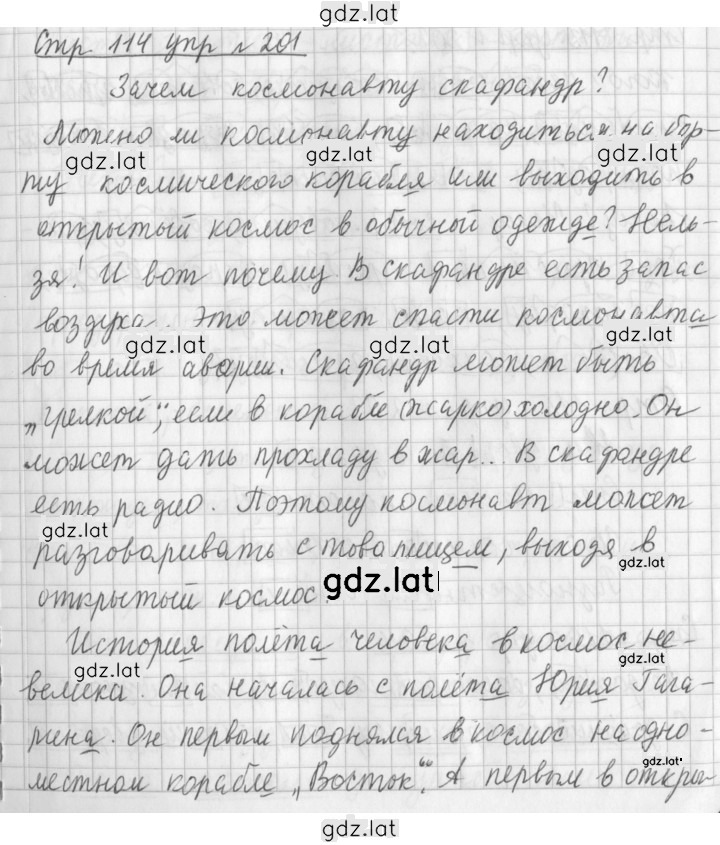 gdz.lat
Стр. 114 упр № 201
Зачем космонавту скафандр?
Можно ли космонавту находиться на бор-
gdz.lat gdz.lat gdz.lat
ту космического корабля или выходить в
открытый космос в обычной одежде? Нель-
зя! И вот почему В скафандре есть запас
воздуха. Это может спасти космонавта
gdz.lat gdz.lat
во время аварии. Скафандр может быть
„грелкой", если в корабле (жарко) холодно. Он
может дать прохладу в жар.. В скафандре
есть радио. Поэтому космонавт может
gdz.lat
разговаривать с товарищем, выходя в
gdz.lat
gdz.lat
открытый космос.
История полёта человека в космос не-
gdz.lat gdz.lat
велика. Она началась с полёта Юрия Гага-
рина. Он первым поднялся в космос на одно-
местном корабле „Восток". А первым в откры-
gdz.lat
gdz.lat